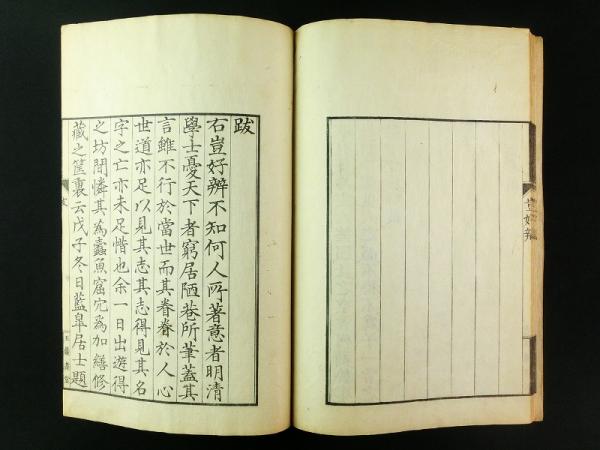 豈好辨
跋
石豈好辨不知何人所著意者明清
學士憂天下者窮居陋巷所筆蓋其
言雖不行於當世而其眷眷於人心
世道亦足以見其志其志得見其名
字之亡亦未足惜也余一日出遊得
之坊間憐其為蠹魚窟穴為加繕修
藏之筐裏云戊子冬日藍皐居士題